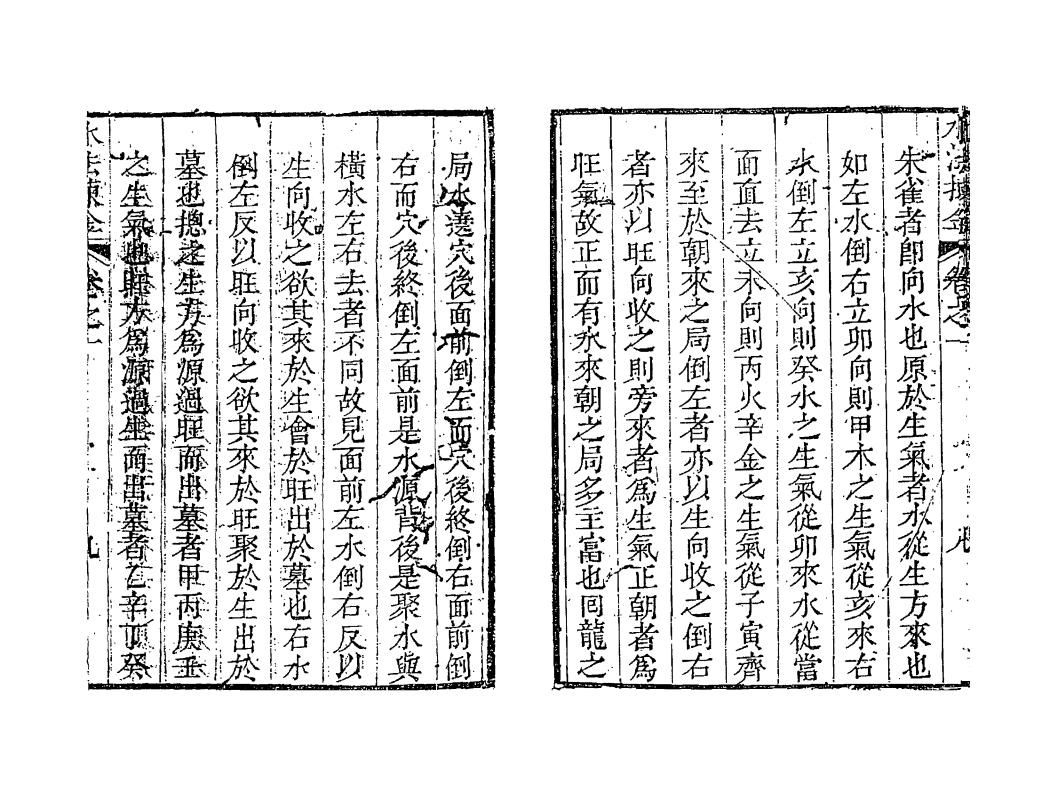 水法摸金 卷之一 八
朱雀者卽向水也原於生氣者水從生方來也
如左水倒右立卯向則甲木之生氣從亥來右
水倒左立亥向則癸水之生氣從卯來水從當
面直去立未向則丙火辛金之生氣從子寅齊
來至於朝來之局倒左者亦以生向收之倒右
者亦以旺向收之則旁來者爲生氣正朝者爲
旺氣故正面有水來朝之局多主富也囘龍之
局水遶穴後面前倒左而穴後終倒右面前倒
右而穴後終倒左面前是水源背後是聚水與
橫水左右去者不同故見面前左水倒右反以
生向收之欲其來於生會於旺出於墓也右水
倒左反以旺向收之欲其來於旺聚於生出於
墓也摠之生方爲源過旺而出墓者甲丙庚壬
之生氣也旺方爲源過生而出墓者乙辛丁癸
卷之一 九